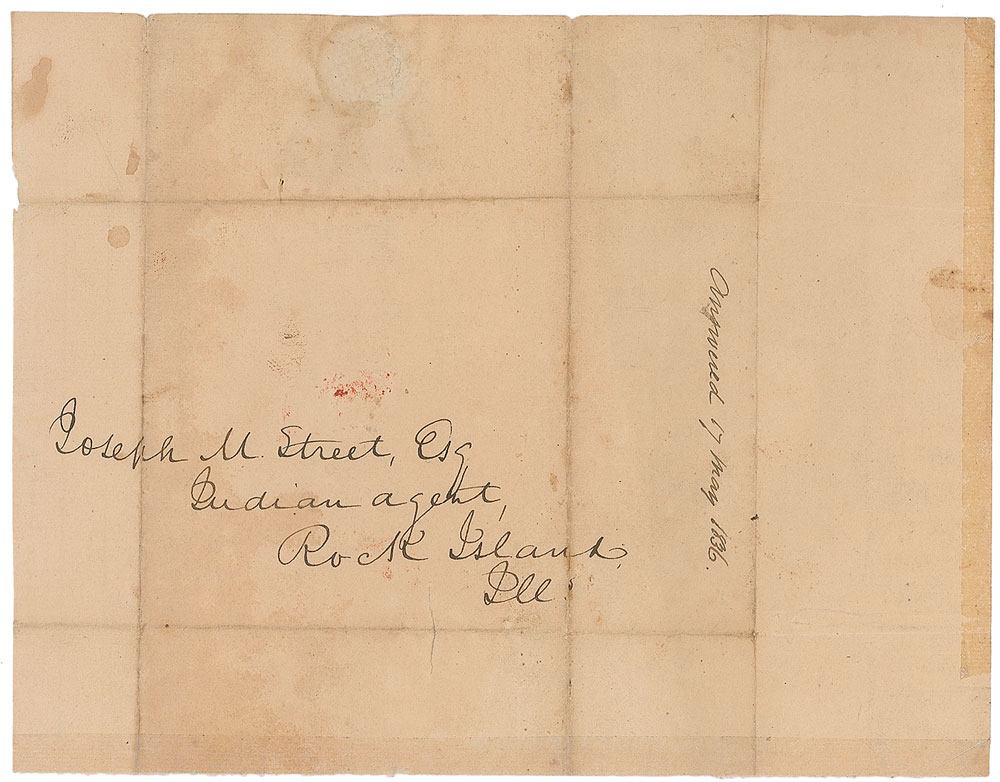 Joseph M. Street, Esq
Indian agent,
Rock Island,
Ill:
Answered 17 May 1836.